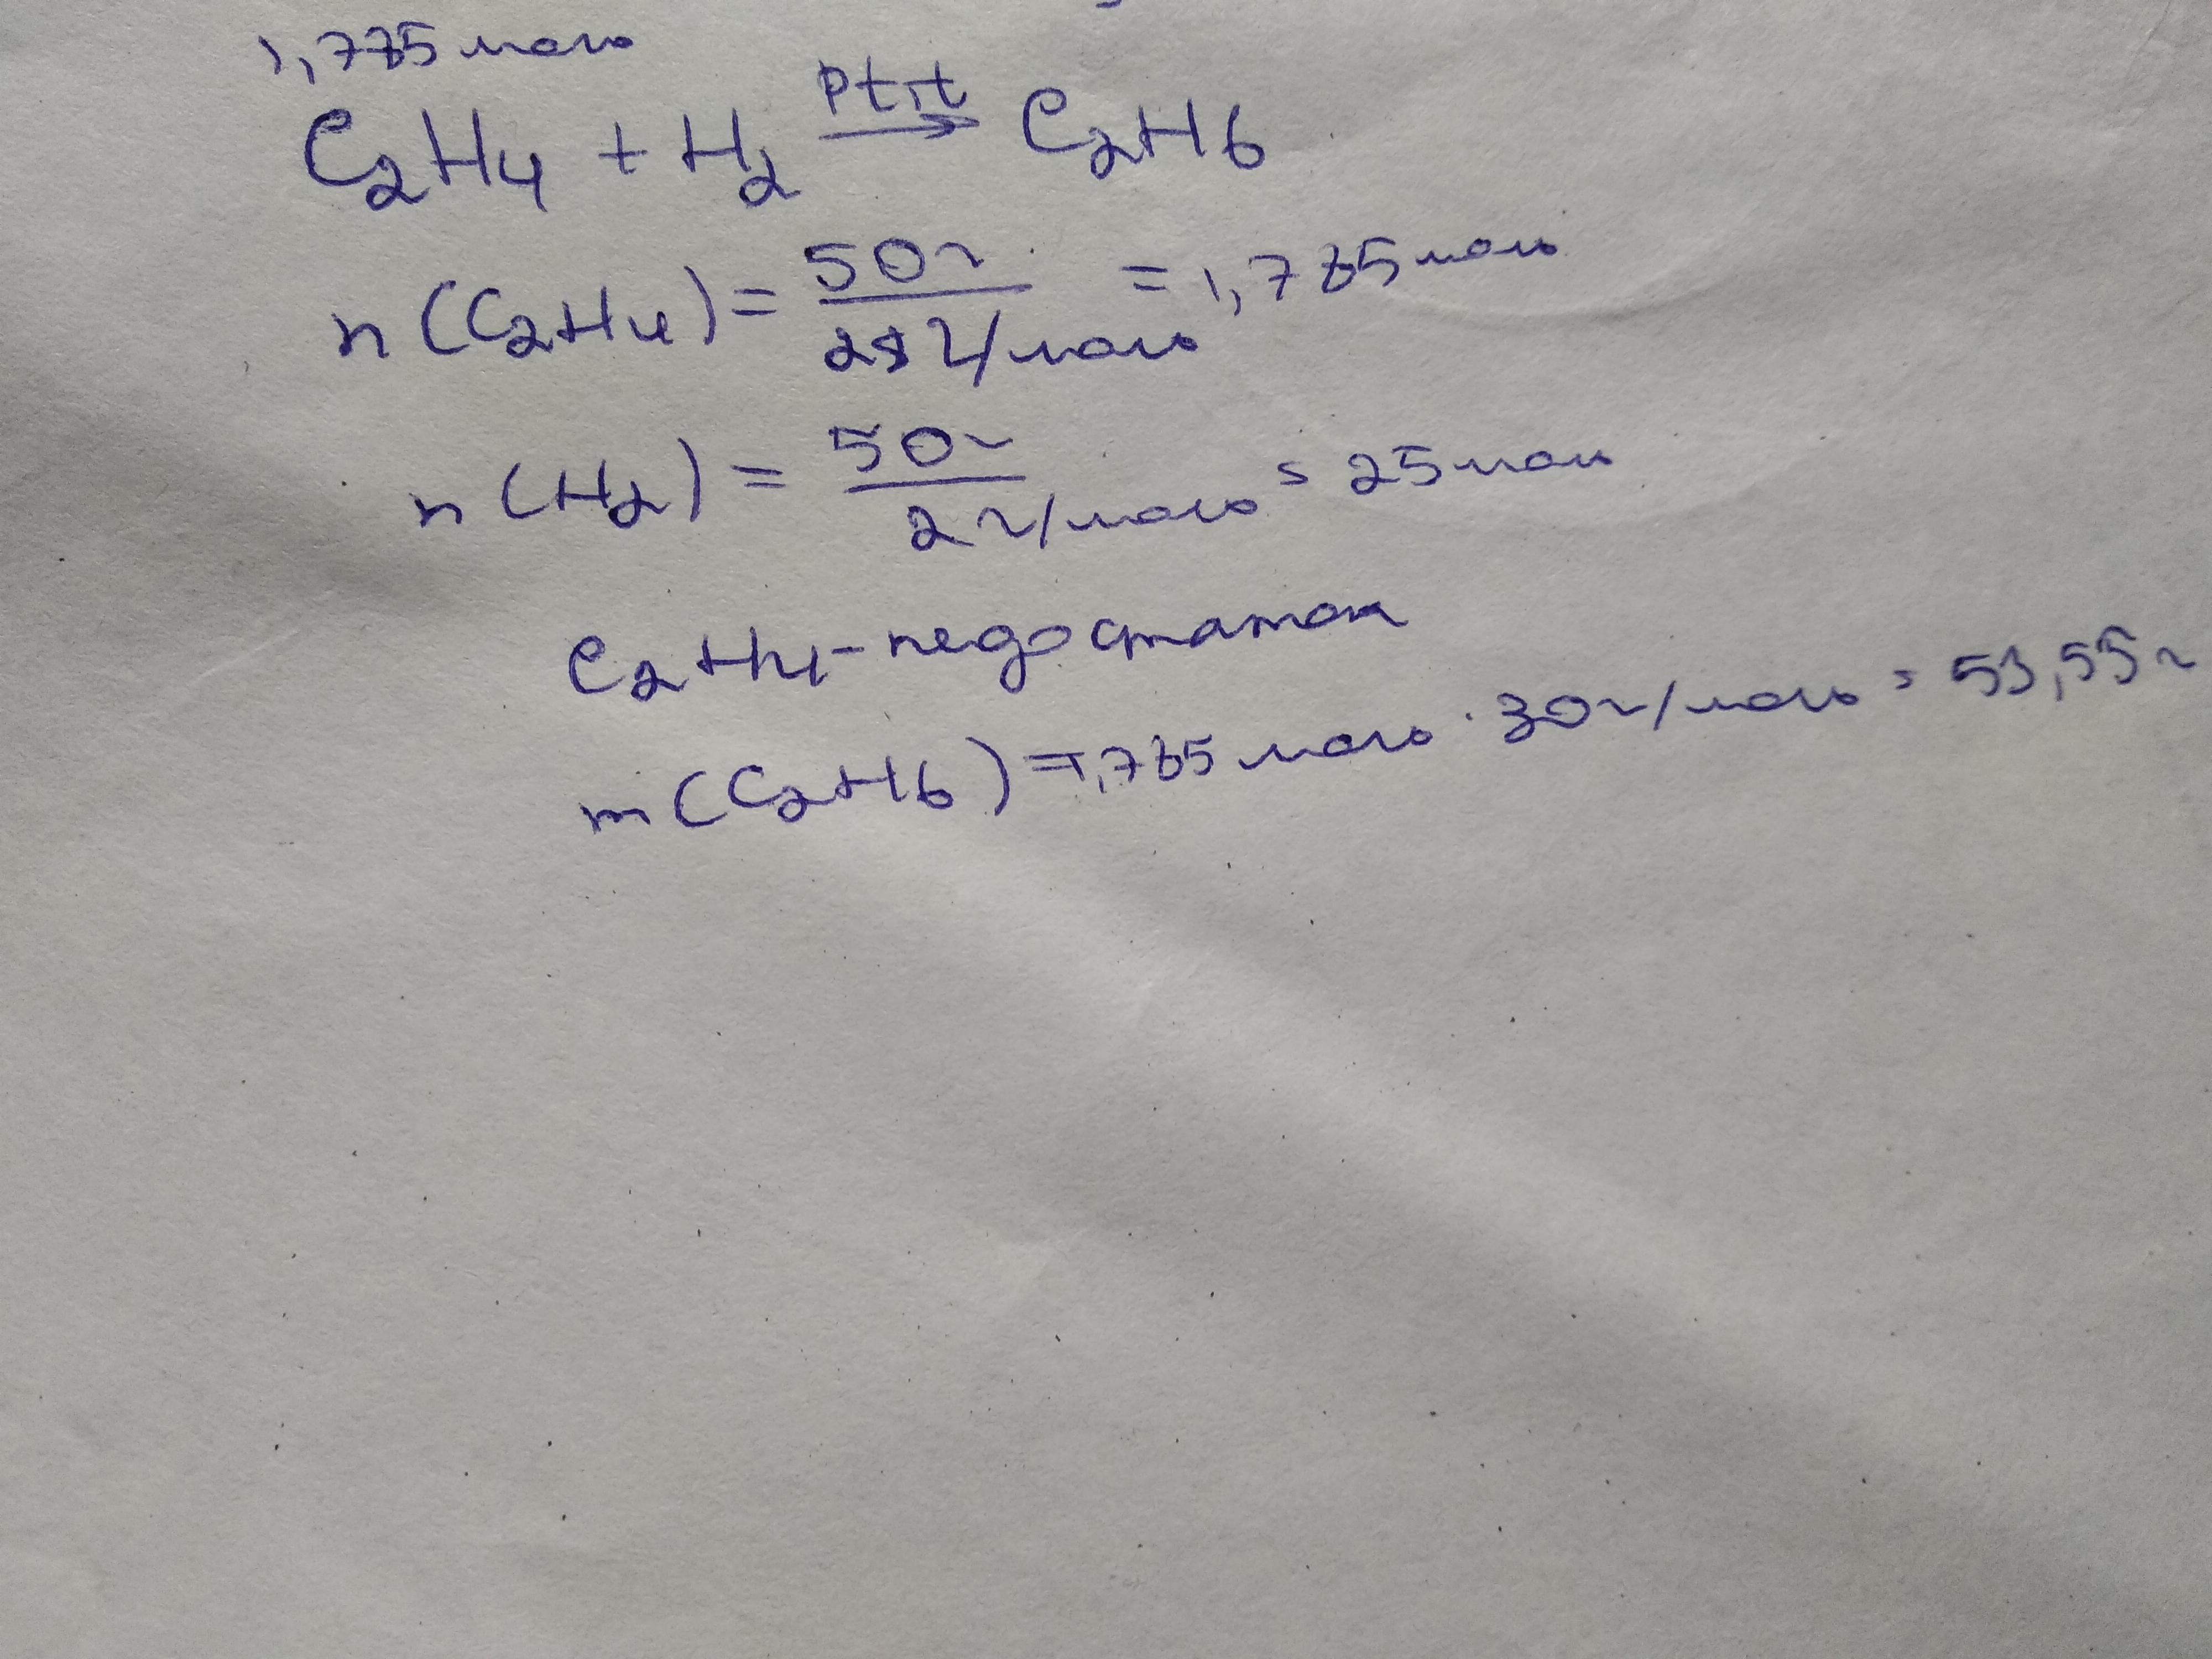 1,785 моль
C2H4 + H2 Pt, t → C2H6
n(C2H4) = 50г / 28 г/моль = 1,785 моль
n(H2) = 50г / 2 г/моль = 25 моль
C2H4 - недостаток
m(C2H6) = 1,785 моль · 30 г/моль = 53,55 г